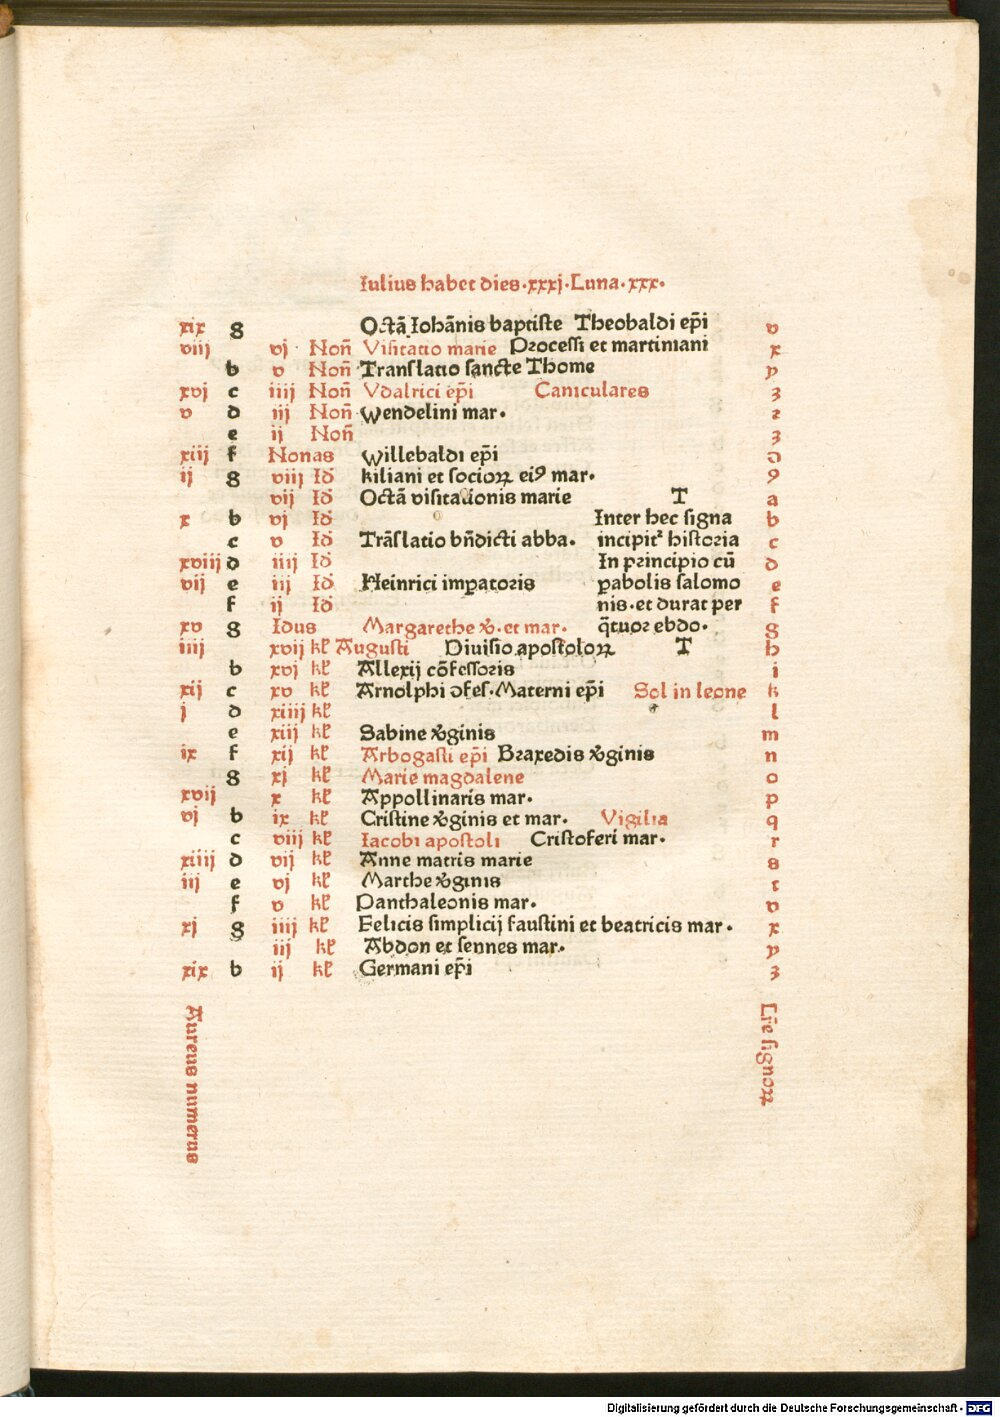 Iulius habet dies·xxxj·Luna·xxx·
xix g Octā Iohānis baptiste Theobaldi ep̄i v
viij vj· Non̄ Visitatio marie Processi et martiniani x
b v Non̄ Translatio sancte Thome y
xvj c iiij Non̄ Vdalrici ep̄i Caniculares z
v d iij Non̄ Wendelini mar· ꝛ
e ij Non̄ ʒ
xiij f Nonas Willebaldi ep̄i ꝺ
ij g viij Id kiliani et socioꝝ eiꝰ mar· ꝯ
vij Id Octā visitationis marie T a
x b vj Id Inter hec signa b
c v Id Trāslatio bn̄dicti abba· incipit᷑ historia c
xviij d iiij Id In principio cū d
vij e iij Id Heinrici impatoris ꝑabolis salomo e
f ij Id nis·et durat per f
xv g Idus Margarethe v̊·et mar· q̄tuor ebdo· g
iiij xvij kl̄ Augusti Diuisio apostoloꝝ T h
b xvj kl̄ Allexij cōfessoris i
xij c xv kl̄ Arnolphi ɔfes·Materni ep̄i Sol in leone k
j d xiiij kl̄ l
e xiij kl̄ Sabine v̊ginis m
ix f xij kl̄ Arbogasti ep̄i Braxedis v̊ginis n
g xj kl̄ Marie magdalene o
xvij x kl̄ Appollinaris mar· p
vj b ix kl̄ Cristine v̊ginis et mar· Vigilia q
c viij kl̄ Iacobi apostoli Cristoferi mar· r
xiiij d vij kl̄ Anne matris marie s
iij e vj kl̄ Marthe v̊ginis t
f v kl̄ Panthaleonis mar· v
xj g iiij kl̄ Felicis simplicij faustini et beatricis mar· x
iij kl̄ Abdon et sennes mar· y
xix b ij kl̄ Germani ep̄i z
Aureus numerus
Lr̄e signoꝝ
Digitalisierung gefördert durch die Deutsche Forschungsgemeinschaft - DFG